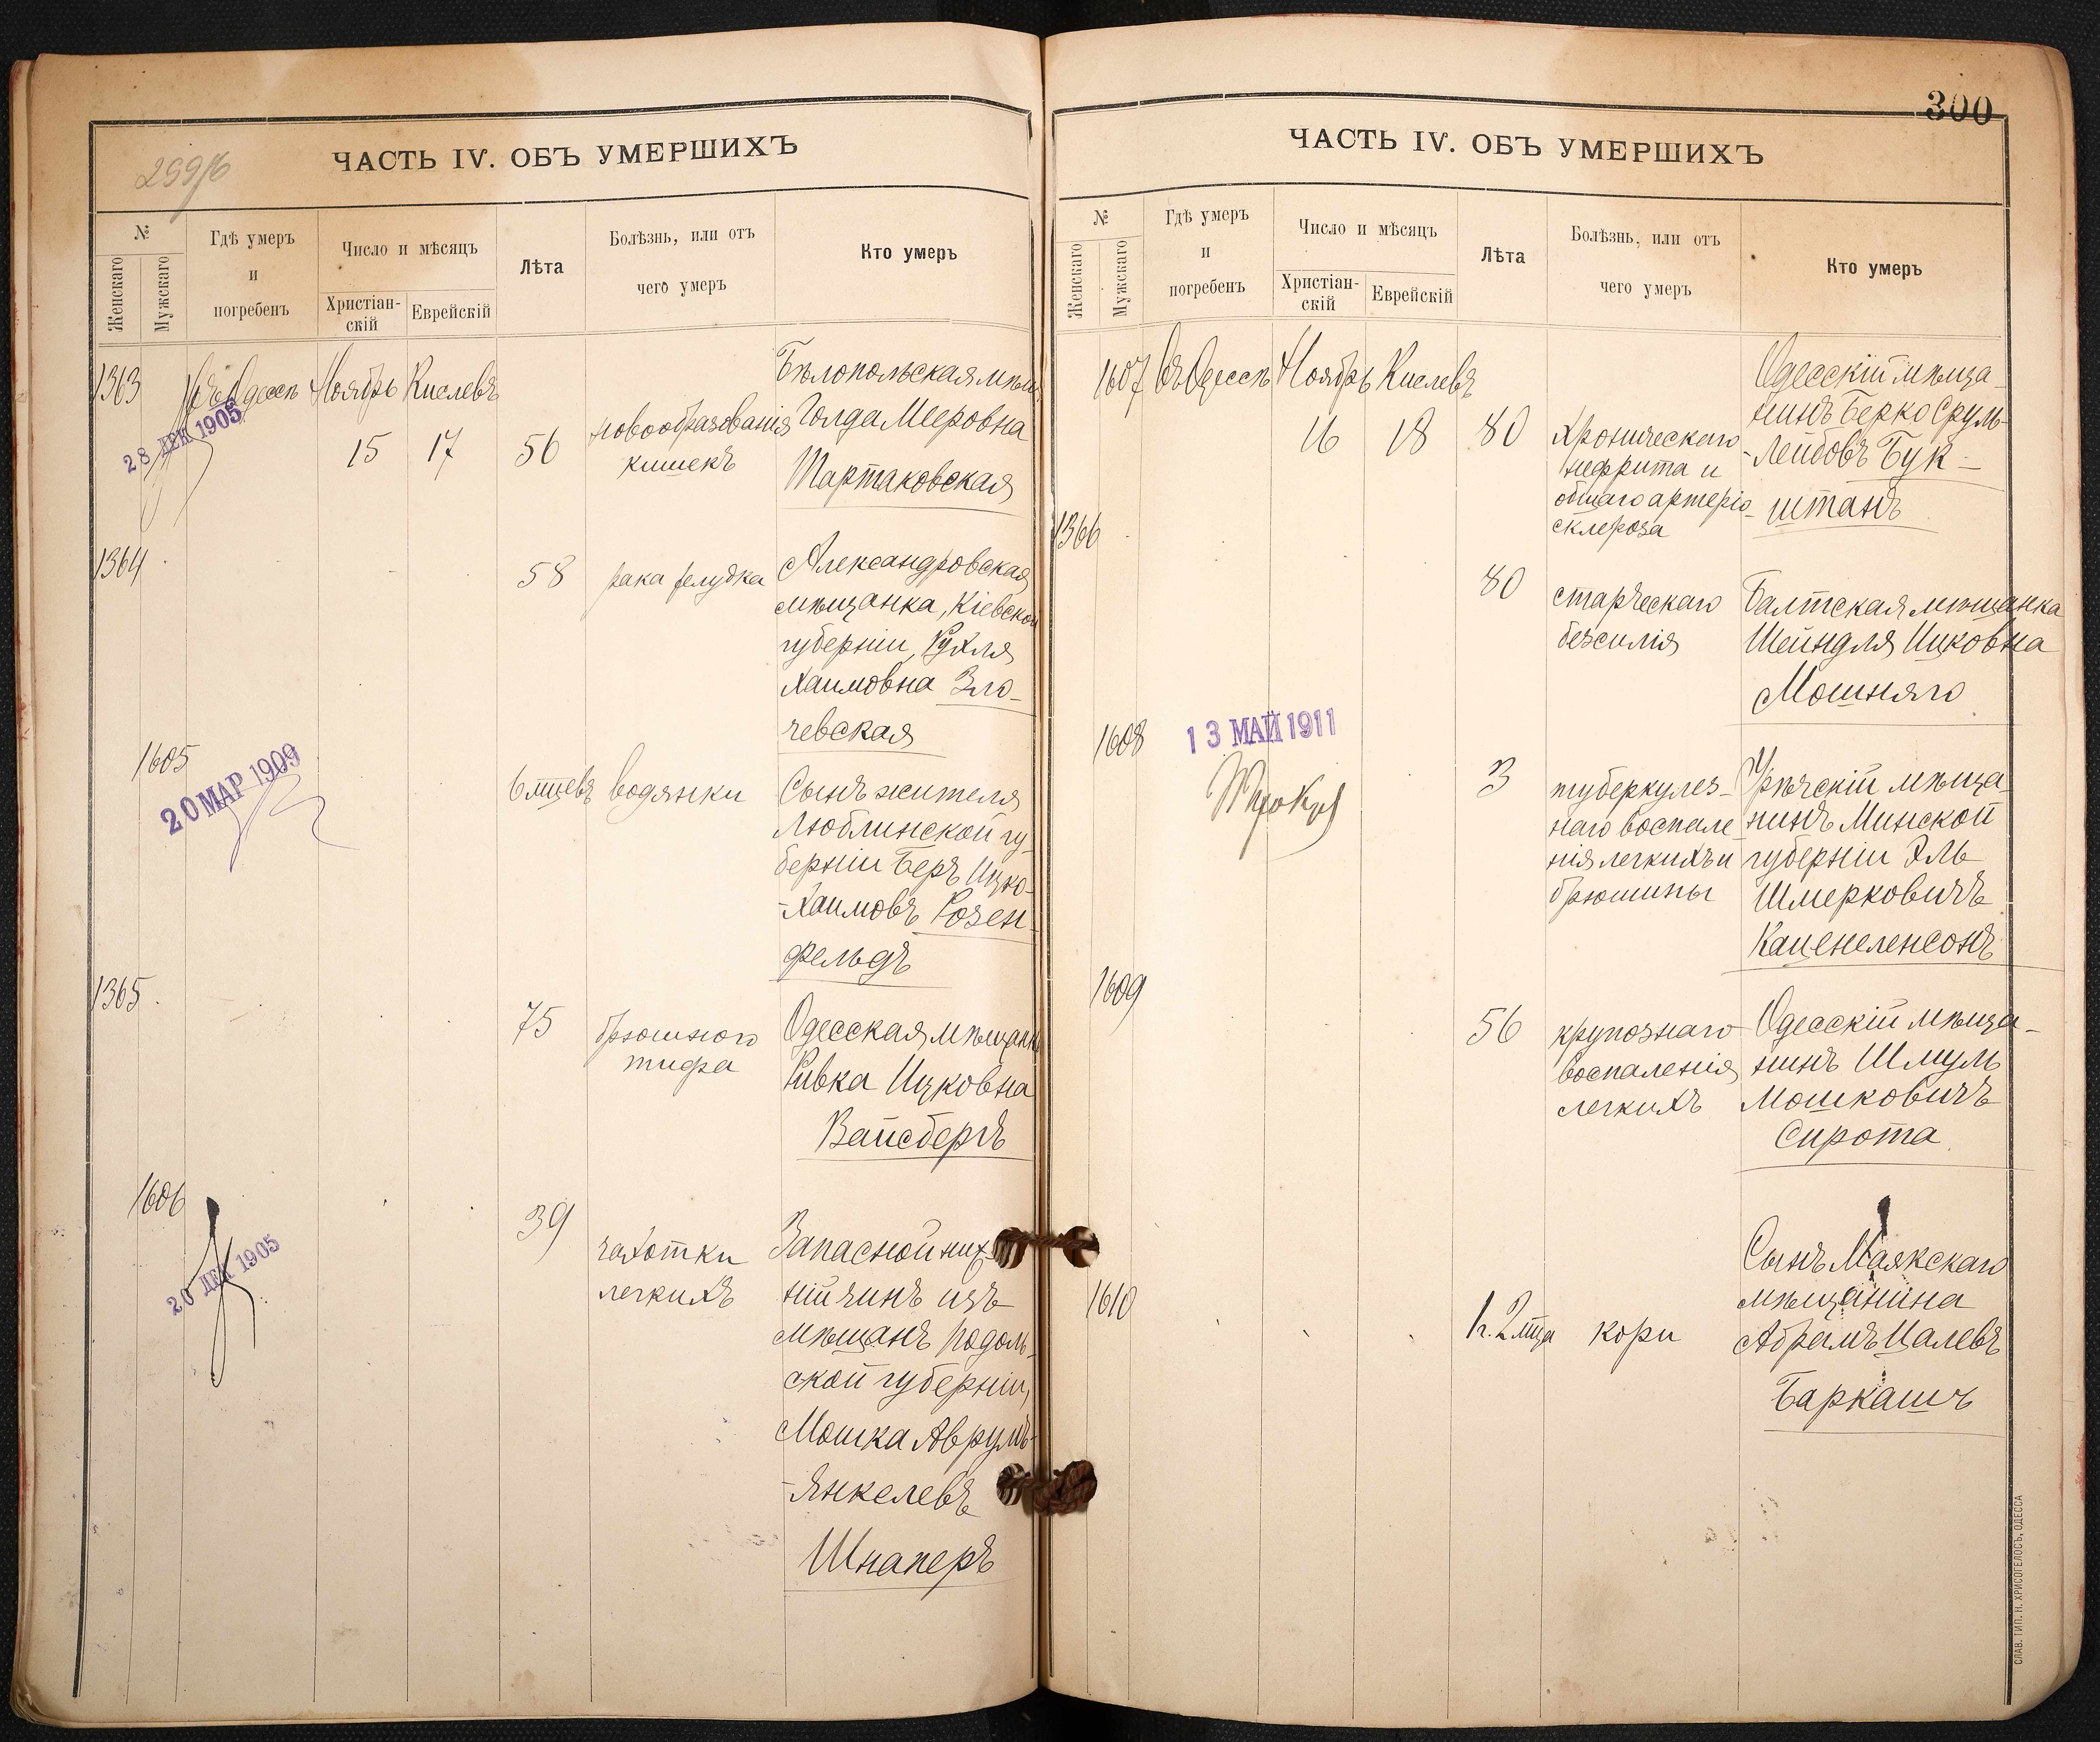 299/б
ЧАСТЬ IV. ОБЪ УМЕРШИХЪ
№
Женскаго
Мужскаго
Гдѣ умеръ
и
погребенъ
Число и мѣсяцъ
Христіан-
скій
Еврейскій
Лѣта
Болѣзнь, или отъ
чего умеръ
Кто умеръ
1363
Въ Одессѣ
Ноябрь
Кислевъ
28 ДЕК 1905
15
17
56
новообразованія
кишекъ
Бѣлопольская мѣщ
Голда Мееровна
Тартаковская
1364
58
рака желудка
Александровская
мѣщанка, Кіевской
губерніи, Рухля
Хаимовна Зло-
чевская
1605
20 МАР 1909
6 мцевъ
водянки
Сынъ жителя
Люблинской гу-
берніи Беръ Ицко-
-Хаимовъ Розен-
фельдъ
1365
75
брюшного
тифа
Одесская мѣщанка
Ривка Ицковна
Вайсбергъ
1606
20 ДЕК 1905
39
чахотки
легкихъ
Запасной ниж-
ній чинъ изъ
мѣщанъ Подоль-
ской губерніи,
Мошка Аврумъ-
-Янкелевъ
Шнаперъ
300
ЧАСТЬ IV. ОБЪ УМЕРШИХЪ
№
Женскаго
Мужскаго
Гдѣ умеръ
и
погребенъ
Число и мѣсяцъ
Христіан-
скій
Еврейскій
Лѣта
Болѣзнь, или отъ
чего умеръ
Кто умеръ
1607
Въ Одессѣ
Ноябрь
Кислевъ
16
18
80
хроническаго
нефрита и
общаго артеріо-
склероза
Одесскій мѣща-
нинъ Берко Сруль-
-Лейбовъ Бук-
штанъ
1366
80
старческаго
безсилія
Балтская мѣщанка
Шейндля Ицковна
Мошняго
1608
13 МАЙ 1911
3
туберкулез-
наго воспале-
нія легкихъ и
брюшины
Урѣчскій мѣща-
нинъ Минской
губерніи Эль
Шмерковичъ
Каценеленсонъ
1609
56
крупознаго
воспаленія
легкихъ
Одесскій мѣща-
нинъ Шмуль
Мошковичъ
Сирота
1610
1 г. 2 мца
кори
Сынъ Маякскаго
мѣщанина
Абрамъ Цалевъ
Баркашъ
СЛАВ. ТИП. Н. ХРИСОГЕЛОСЪ, ОДЕССА